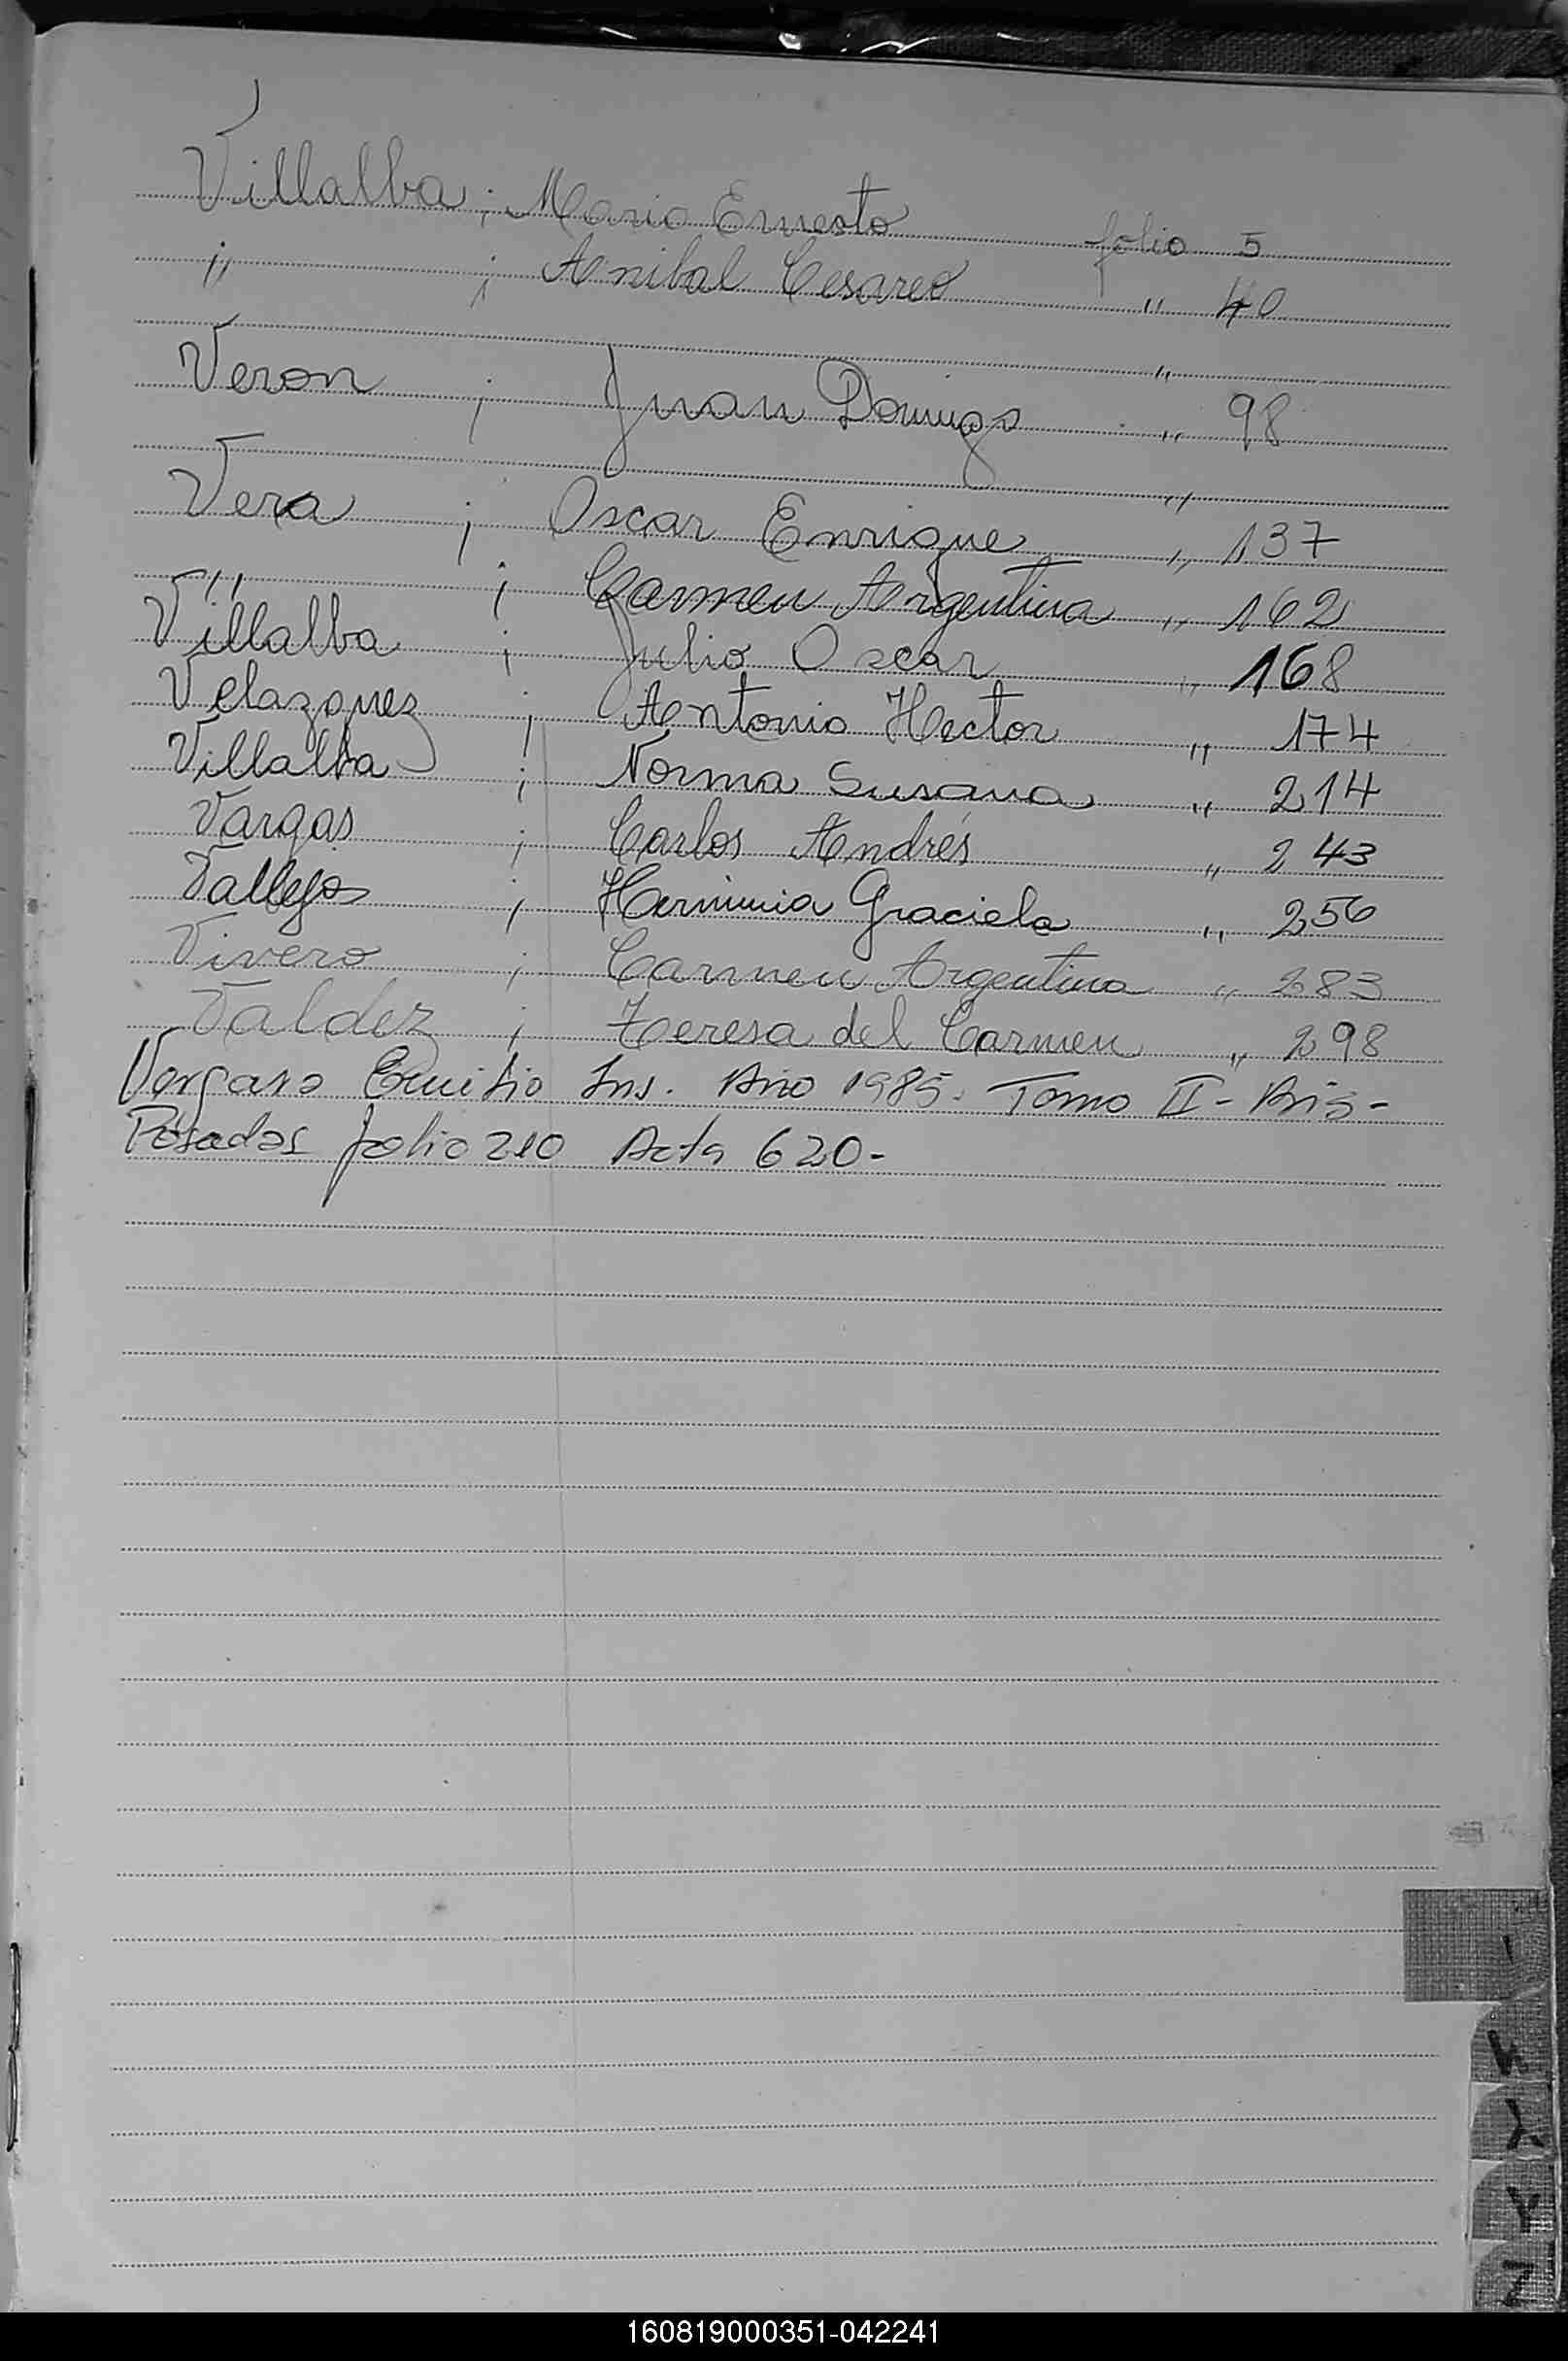 Villalba ; Mario Ernesto folio 5
" ; Anibal Cesareo " 40
"
Veron ; Juan Domingo " 98
"
Vera ; Oscar Enrique " 137
" ; Carmen Argentina " 162
Villalba ; Julio Oscar " 168
Velazquez ; Antonio Hector " 174
Villalba ; Norma Susana " 214
Vargas ; Carlos Andrés " 243
Vallejos ; Herminia Graciela " 256
Vivero ; Carmen Argentina " 283
Valdez ; Teresa del Carmen " 298
Vergara Emilio Ins. Año 1985. Tomo II - Bis -
Posadas folio 210 Acta 620 -
X
Y
Z
160819000351-042241